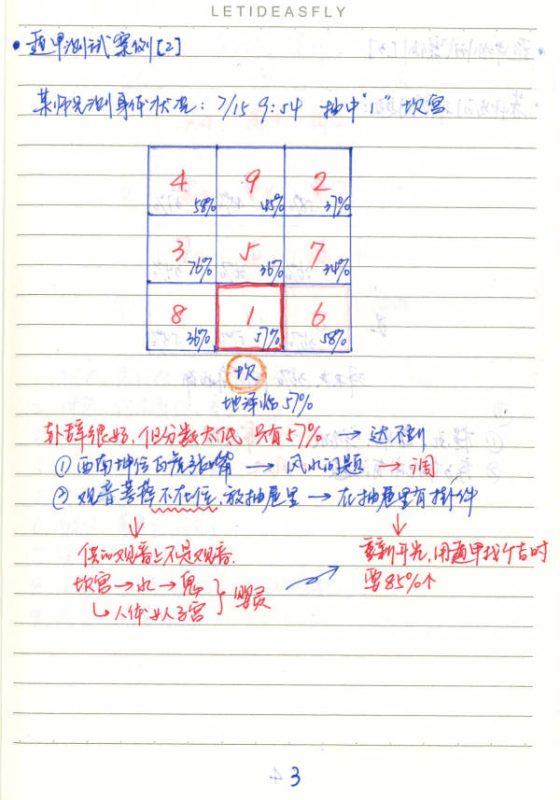 LETIDEASFLY
• 遁甲测试案例[2]
某师兄测身体状况：7/15 9:54 抽中"1" 坎宫
4 58% 9 45% 2 37%
3 76% 5 36% 7 34%
8 36% 1 57% 6 58%
坎
地泽临57%
卦辞很好，但分数太低 只有57% → 达不到
① 西南坤位有虎张嘴 → 风水问题 → 调
② 观音菩萨不在位，放抽屉里 → 在抽屉里有掛件
供的观音上不是观音.
坎宫→水→鬼
↳人体女人子宫
婴灵
重新开光，用遁甲找个吉时
要85%↑
3